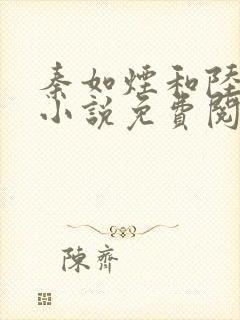 秦如煙和陸
小說免費閱
陳齊